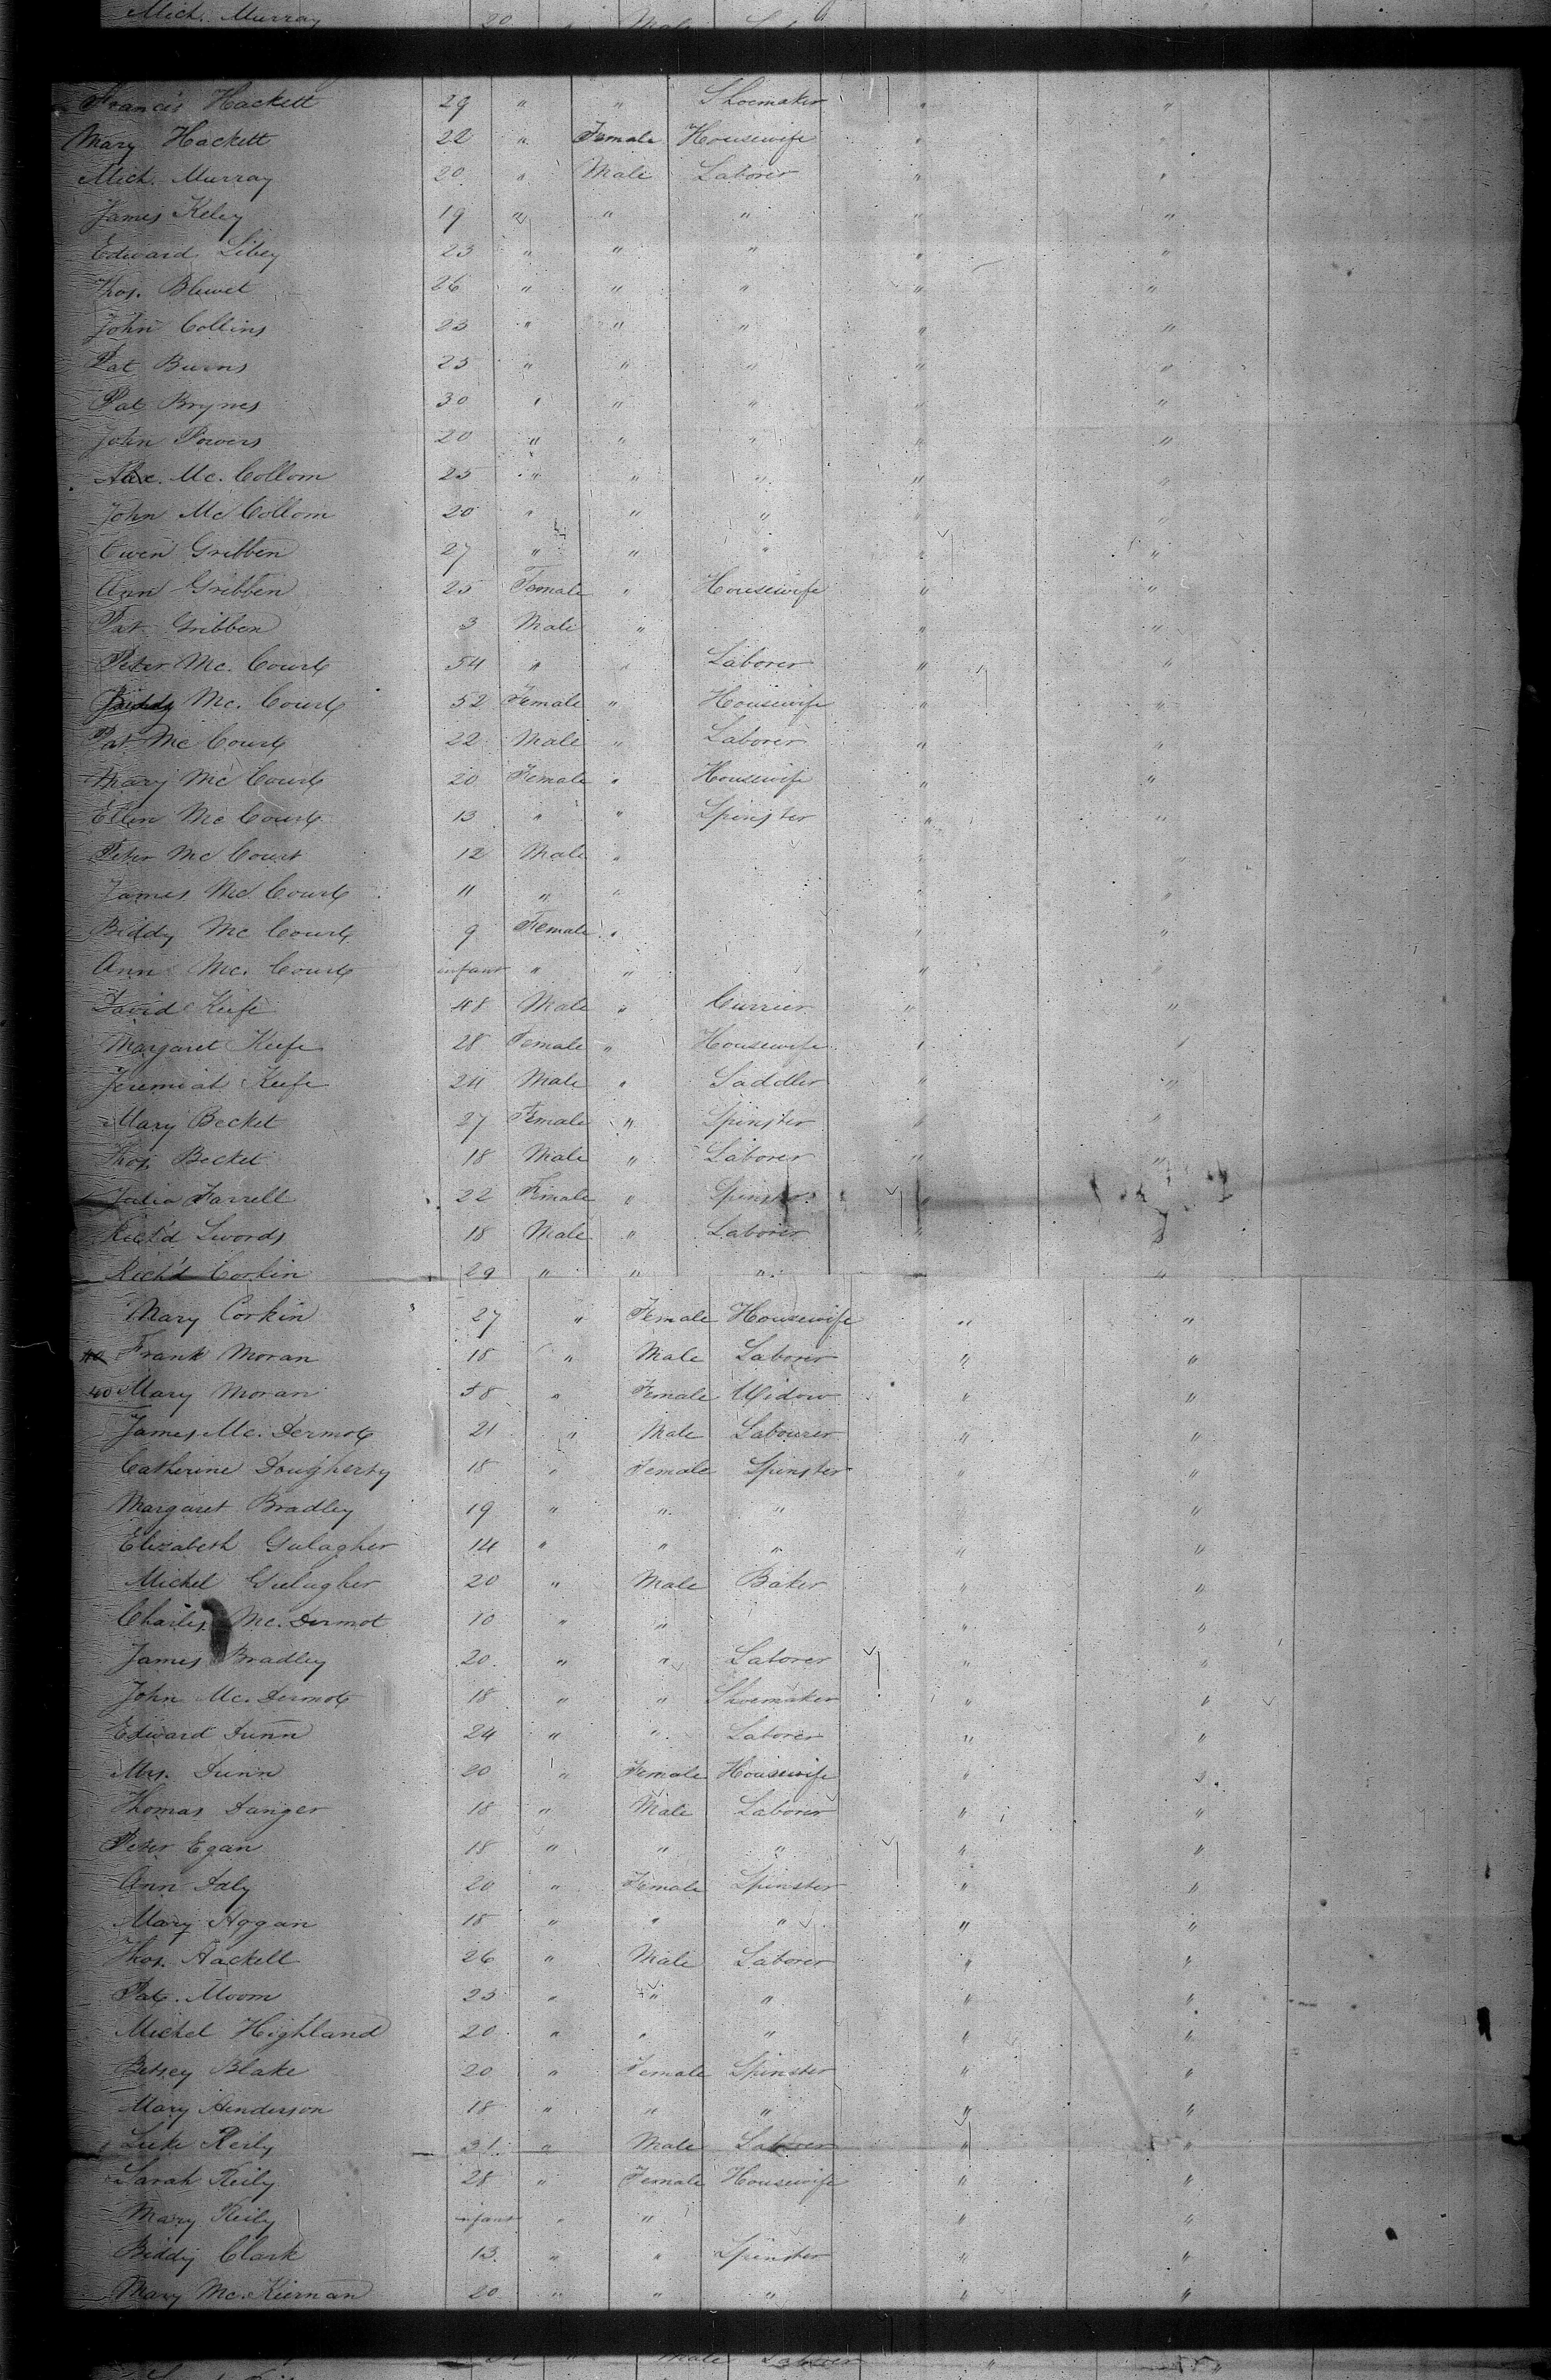 Mich. Murray 20 " Male
Francis Hackett 29 " " Shoemaker " "
Mary Hackett 22 " Female Housewife " "
Mich. Murray 20 " Male Laborer " "
James Keley 19 " " " " "
Edward Libey 23 " " " " "
Thos. Blewet 26 " " " " "
John Collins 23 " " " " "
Pat Burns 25 " " " " "
Pat Brynes 30 " " " " "
John Powers 20 " " " " "
Alex. Mc. Collom 25 " " " " "
John Mc Collom 20 " " " " "
Owen Gribben 27 " " " " "
Ann Gribben 25 Female " Housewife " "
Pat Gribben 3 Male " " "
Peter Mc. Court 54 " " Laborer " "
Biddy Mc. Court 52 Female " Housewife " "
Pat Mc Court 22 Male " Laborer " "
Mary Mc Court 20 Female " Housewife " "
Ellen Mc Court 13 " " Spinster " "
Peter Mc Court 12 Male " " "
James Mc Court 11 " " " "
Biddy Mc Court 9 Female " " "
Ann Mc. Court infant " " " "
David Keefe 48 Male " Currier " "
Margaret Keefe 28 Female " Housewife " "
Jeremiah Keefe 24 Male " Saddler " "
Mary Becket 27 Female " Spinster " "
Thos. Becket 18 Male " Laborer " "
Julia Farrell 22 Female " Spinster "
Rich'd Swords 18 Male " Laborer " "
Rich'd Corkin 29 " " " "
Mary Corkin 27 " Female Housewife " "
Frank Moran 18 " Male Laborer " "
40 Mary Moran 58 " Female Widow " "
James Mc. Dermot 21 " Male Labourer " "
Catherine Dougherty 18 " Female Spinster " "
Margaret Bradley 19 " " " "
Elizabeth Gulagher 14 " " " " "
Michel Gulagher 20 " Male Baker " "
Charles Mc. Dermot 10 " " " "
James Bradley 20 " " Laborer " "
John Mc. Dermot 18 " " Shoemaker " "
Edward Dunn 24 " " Laborer " "
Mrs. Dunn 20 " Female Housewife " "
Thomas Danger 18 " Male Laborer " "
Peter Egan 18 " " " " "
Ann Daly 20 " Female Spinster " "
Mary Hogan 18 " " " " "
Thos. Hackell 26 " Male Laborer " "
Pat. Moom 23 " " " " "
Michel Highland 20 " " " " "
Betsey Blake 20 " Female Spinster " "
Mary Henderson 18 " " " " "
Luke Reily 31 " Male Laborer " "
Sarah Reily 28 " Female Housewife " "
Mary Reily infant " " " "
Biddy Clark 13 " " Spinster " "
Mary Mc. Kiernan 20 " " " " "
Male Laborer "